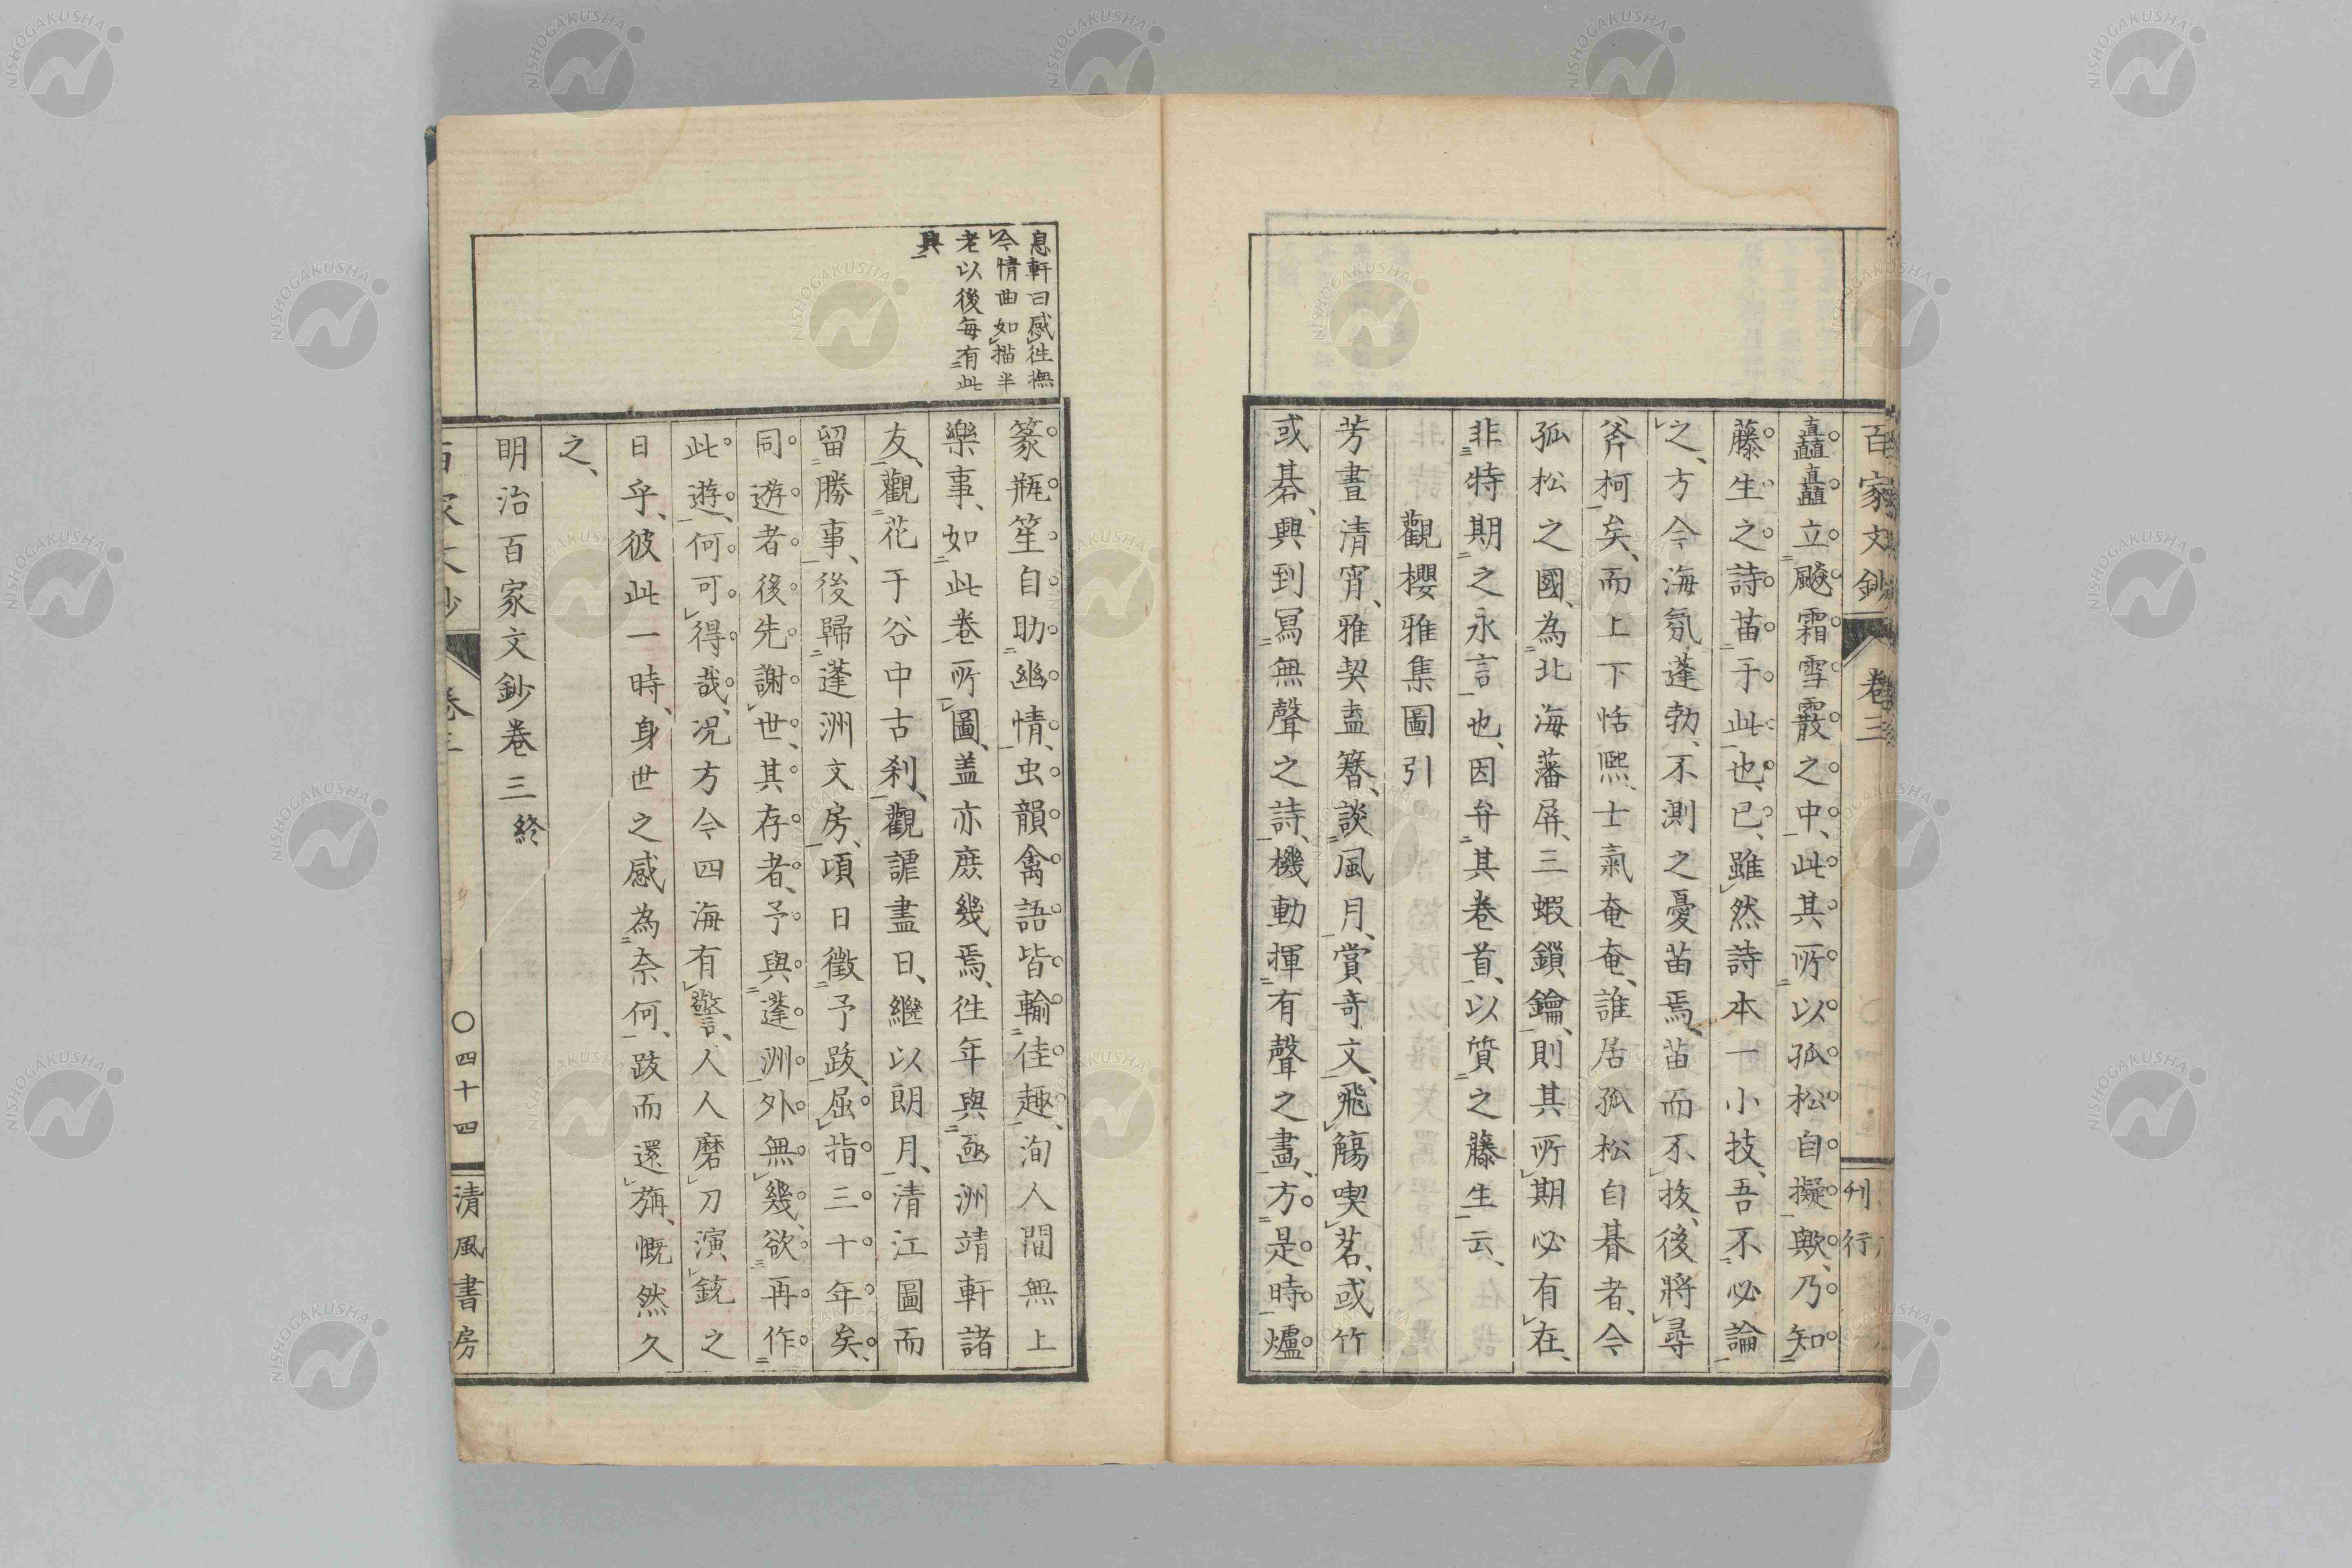 百家文鈔 卷三 刊行
矗矗立颷霜雪霰之中、此其所以孤松自擬歟、乃知
藤生之詩苗于此也、已、雖然詩本一小技、吾不必論
之、方今海氛蓬勃、不測之憂苗焉、苗而不拔、後將尋
斧柯矣、而上下恬熈、士氣奄奄、誰居孤松自碁者、今
孤松之國、為北海藩屏、三蝦鎖鑰、則其所期必有在、
非特期之永言也、因弁其卷首、以質之藤生云、
觀櫻雅集圖引
芳晝清宵、雅契盍簪、談風月、賞奇文、飛觴喫茗、或竹
或碁、興到冩無聲之詩、機動揮有聲之畫、方是時爐
息軒曰感徃撫
今情曲如描半
老以後每有此
興
篆瓶笙自助幽情、虫韻禽語皆輸佳趣、洵人間無上
樂事、如此卷所圖、盖亦庶幾焉、徃年與亟洲靖軒諸
友、觀花于谷中古刹、觀謔盡日、繼以朗月、清江圖而
留勝事、後歸蓬洲文房、頃日徵予跋、屈指三十年矣、
同遊者後先謝世、其存者、予與蓬洲外無幾、欲再作
此遊、何可得哉、况方今四海有警、人人磨刀演銃之
日乎、彼此一時、身世之感為奈何、跋而還㫋、慨然久
之、
明治百家文鈔卷三終
百家文鈔 卷三 〇四十四 清風書房